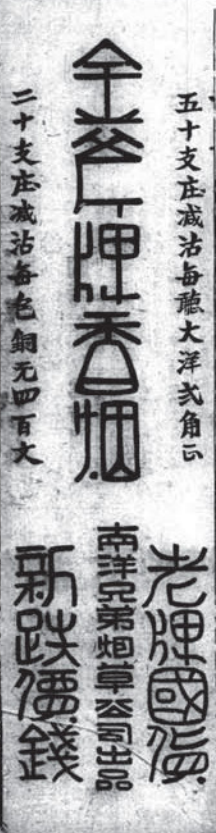 五十支庄減沽每聽大洋弍角正
金斧牌香烟
二十支庄減沽每包銅元四百文
老牌國貨
南洋兄弟烟草公司出品
新跌價錢